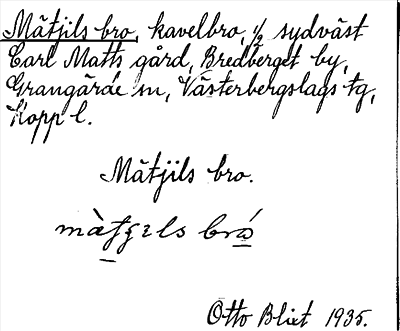 Mätjils bro, kavelbro, 1/2 sydväst
Carl Matts gård, Bredberget by,
Grangärde sn, Västerbergslags tg,
Kopp l.
Mätjils bro.
Otto Blixt 1935.